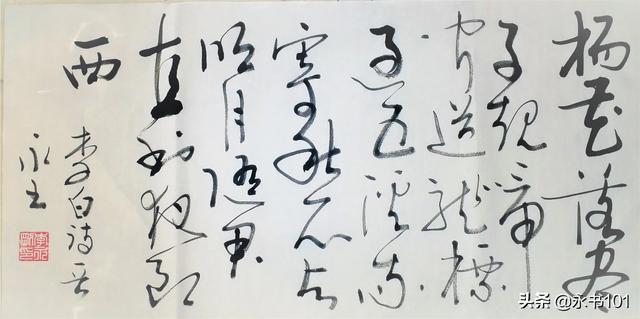 杨花落尽
子规啼
闻道龙标
过五溪我
寄愁心与
明月随君
直到夜郎
西
李白诗一首
永书
头条 @永书101